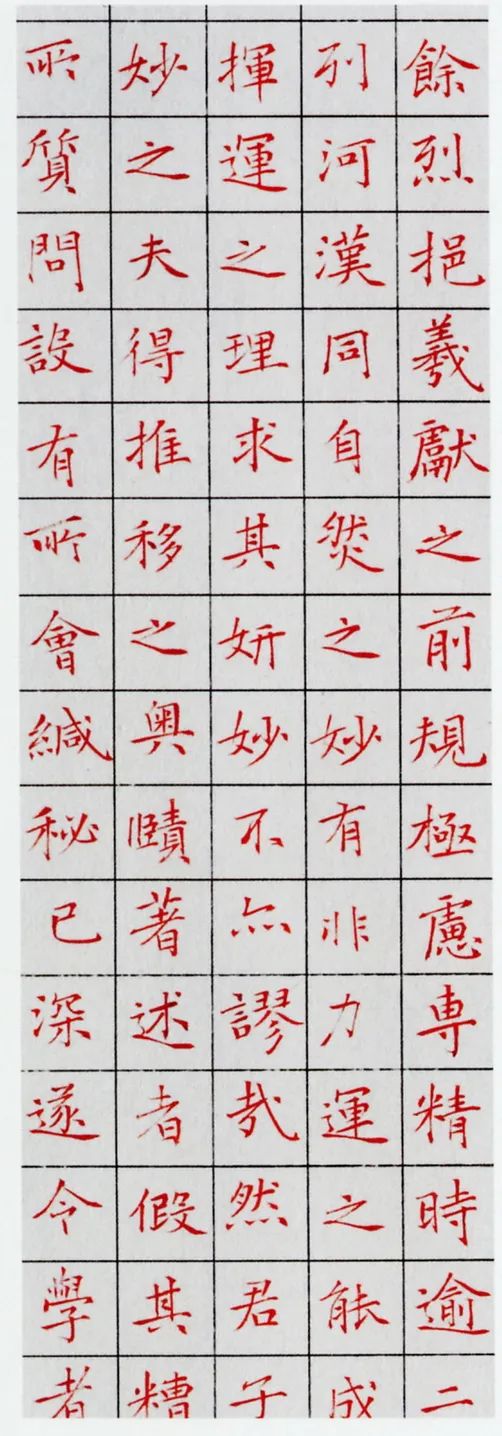 餘烈挹羲獻之前規極慮專精時逾二
列河漢同自然之妙有非力運之能成
揮運之理求其妍妙不亦謬哉然君子
妙之夫得推移之奧賾著述者假其糟
所質問設有所會緘秘已深遂令學者